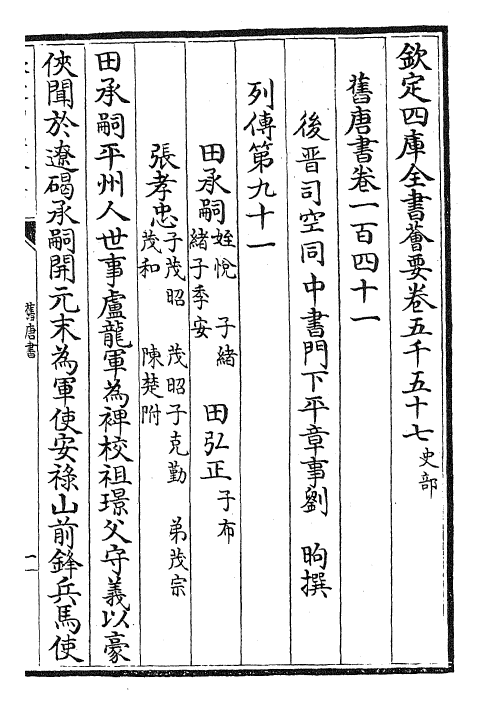 欽定四庫全書薈要卷五千五十七 史部
舊唐書卷一百四十一
後晉司空同中書門下平章事劉 昫撰
列傳第九十一
田承嗣 姪悅 子緒 緒子季安 田弘正 子布
張孝忠 子茂昭 茂昭子克勤 弟茂宗 茂和 陳楚附
田承嗣平州人世事盧龍軍為裨校祖璟父守義以豪
俠聞於遼碣承嗣開元末為軍使安祿山前鋒兵馬使
舊唐書
一